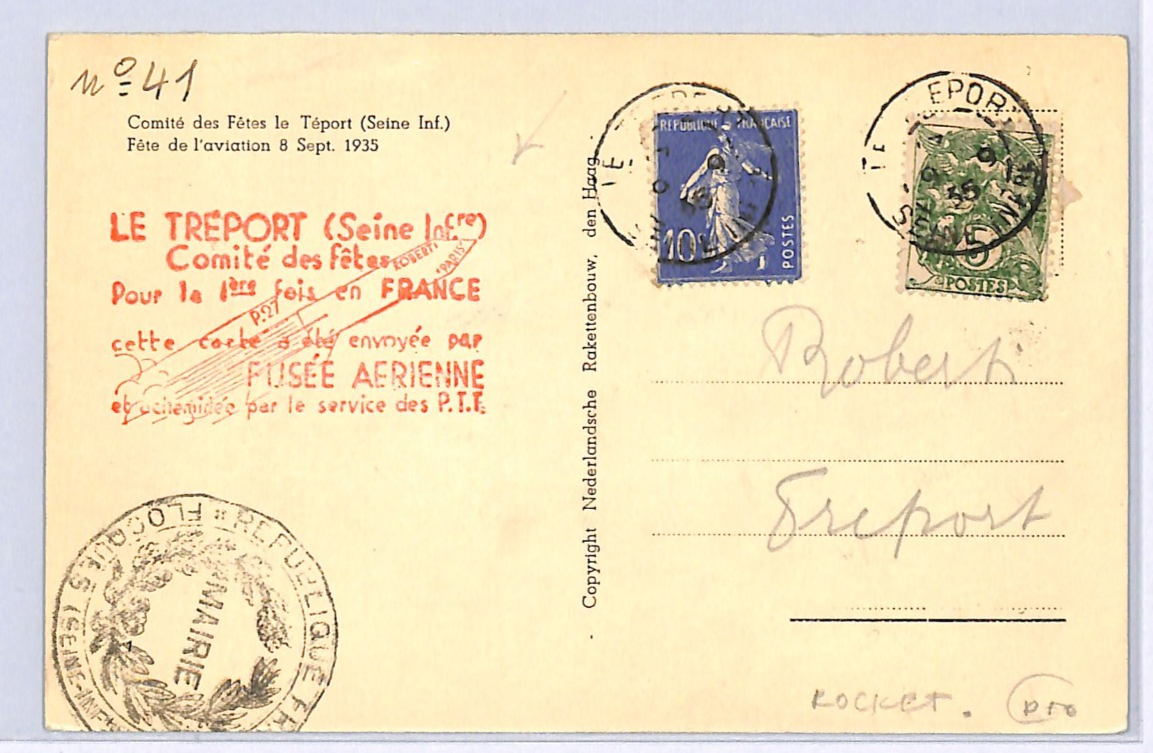 nº 41
Comité des Fêtes le Téport (Seine Inf.)
Fête de l'aviation 8 Sept. 1935
LE TRÉPORT (Seine Infre)
Comité des fêtes
ROBERTI
"PARIS"
Pour la 1ère fois en FRANCE
P.27
cette carte a été envoyée par
FUSÉE AERIENNE
et acheminée par le service des P.T.T.
RÉPUBLIQUE FR
FLOCQUES (SEINE-INF
MAIRIE
- Copyright Nederlandsche Rakettenbouw, den Haag -
REPUBLIQUE FRANÇAISE
10c
POSTES
LE EPORT
SEINE INFRE
35
5
POSTES
Roberti
Treport
ROCKET.